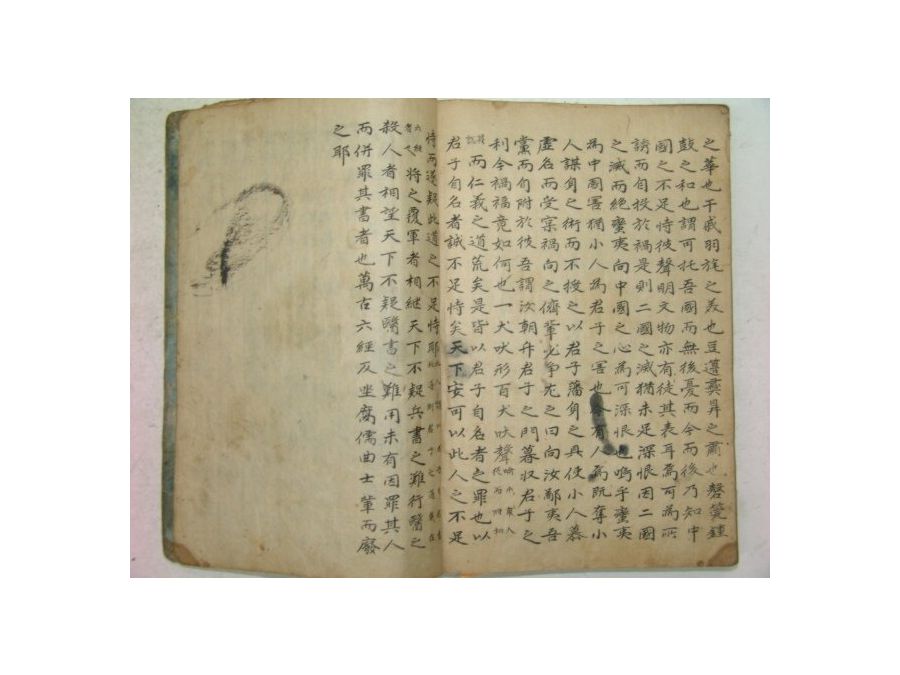 之華也干戚羽旄之美也豆籩彛鼎之肅也磬筦鍾
鼓之和也謂可托吾國而無後憂而今而後乃知中
國之不足恃彼聲明文物亦有徒其表耳為可為所
誘而自投於禍是則二國之滅猶未足深恨因二國
之滅而絶蠻夷向中國之心為可深恨也嗚乎蠻夷
為中國害猶小人為君子之害也有人為既奪小
人謀身之術而不授之以君子藩身之具使小人慕
虛名而受實禍向之儕輩必爭先之曰向汝鄙夷吾
黨而自附於彼吾謂汝朝升君子之門暮收君子之
利今禍福竟如何也一犬吠形百犬吠聲
而仁義之道荒矣是皆以君子自名者之罪也以
君子自名者誠不足恃矣天下安可以此人之不足
恃而遂疑此道之不足恃耶
將之覆軍者相繼天下不疑兵書之難行醫之
殺人者相望天下不疑醫書之難用未有因罪其人
而併罪其書者也萬古六經反坐腐儒曲士輩而廢
之耶